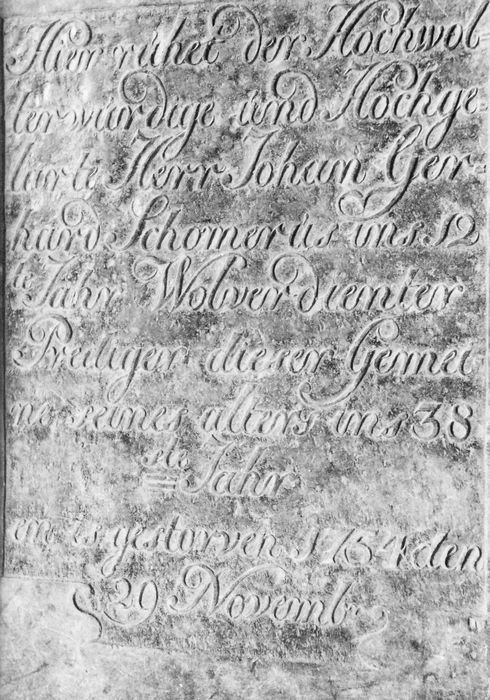 Hier ruhet der Hochwol-
lerwurdige und Hochge-
lurte Herr Joham Ger-
hard Schomerus ins 12
te Jahr Wolverdienter
Prediger dieser Gemei-
ne seines alters ins 38
ste Jahr
en is gestorven 1754 den
29 Novemb